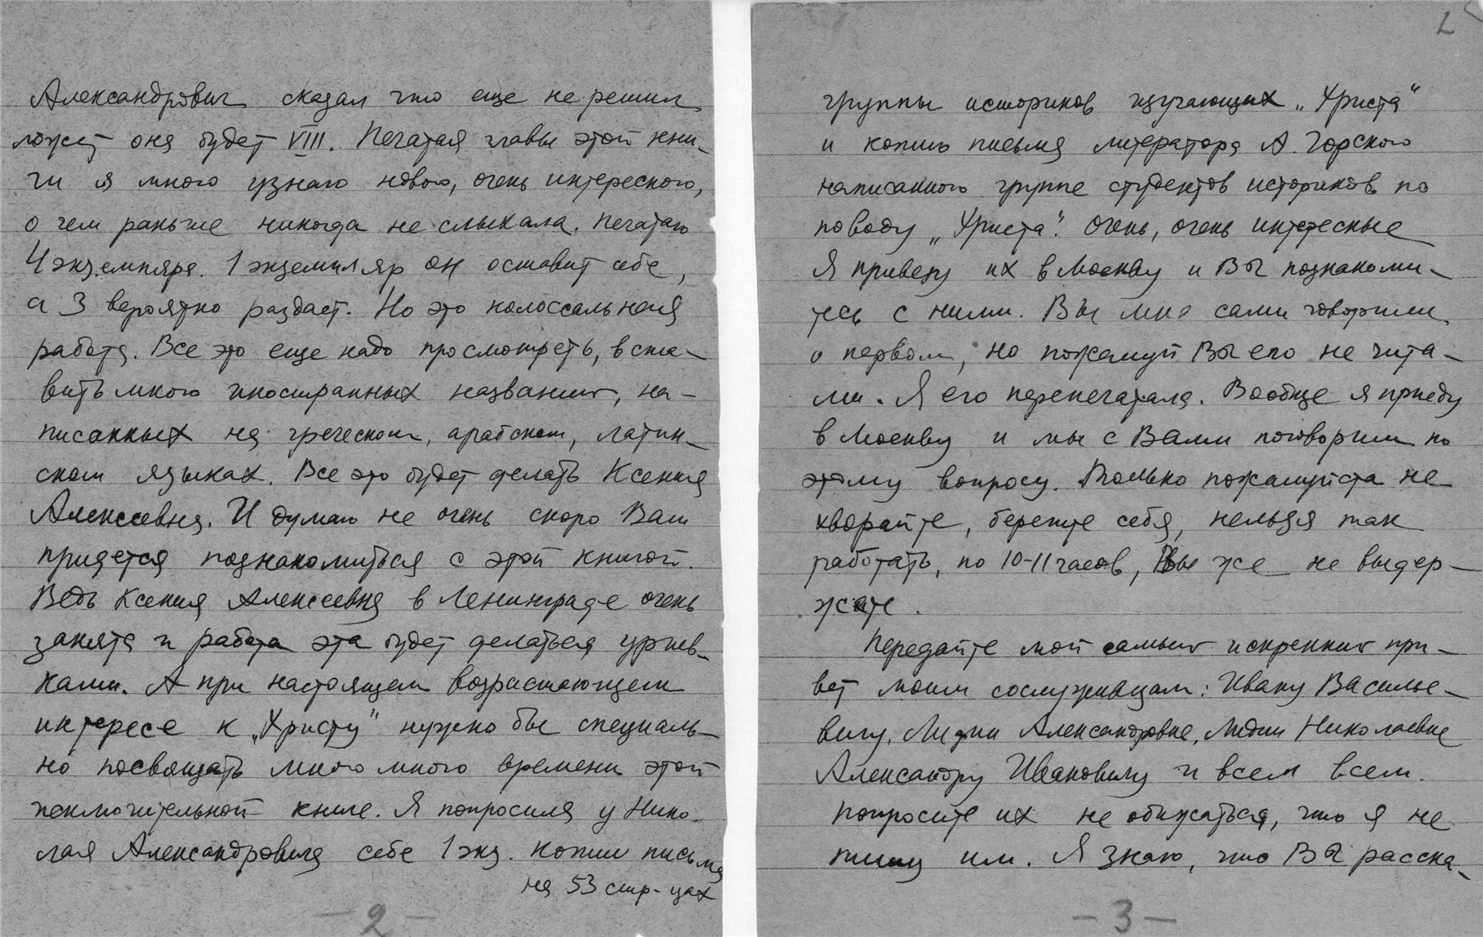 Александрович сказал что еще не решил
может она будет VIII. Печатая главы этой кни-
ги я много узнаю нового, очень интересного,
о чем раньше никогда не слыхала. Печатаю
4 экземпляра. 1 экземпляр он оставит себе,
а 3 вероятно раздаст. Но это колоссальная
работа. Все это еще надо просмотреть, вста-
вить много иностранных названий, на-
писанных на греческом, арабском, латин-
ском языках. Все это будет делать Ксения
Алексеевна. И думаю не очень скоро Вам
придется познакомиться с этой книгой.
Ведь Ксения Алексеевна в Ленинграде очень
занята и работа эта будет делаться урив-
ками. А при настоящем возрастающем
интересе к „Христу" нужно бы специаль-
но посвящать много много времени этой
исключительной книге. Я попросила у Нико-
лая Александровича себе 1 экз. копии письма
на 53 стр-цах
- 2 -
2
группы историков изучающих „Христа"
и копию письма литератора А. Горского
написанного группе студентов историков по
поводу „Христа". Очень, очень интересные
Я привезу их в Москву и Вы познакоми-
тесь с ними. Вы мне сами говорили
о первом, но пожалуй Вы его не чита-
ли. Я его перепечатала. Вообще я приеду
в Москву и мы с Вами поговорим по
этому вопросу. Только пожалуйста не
хворайте, берегите себя, нельзя так
работать, по 10-11 часов, Вы же не выдер-
жите.
Передайте мой самый искренний при-
вет моим сослуживцам: Ивану Василье-
вичу, Лидии Александровне, Лидии Николаевне
Александру Ивановичу и всем всем.
Попросите их не обижаться, что я не
пишу им. Я знаю, что Вы расска-
- 3 -